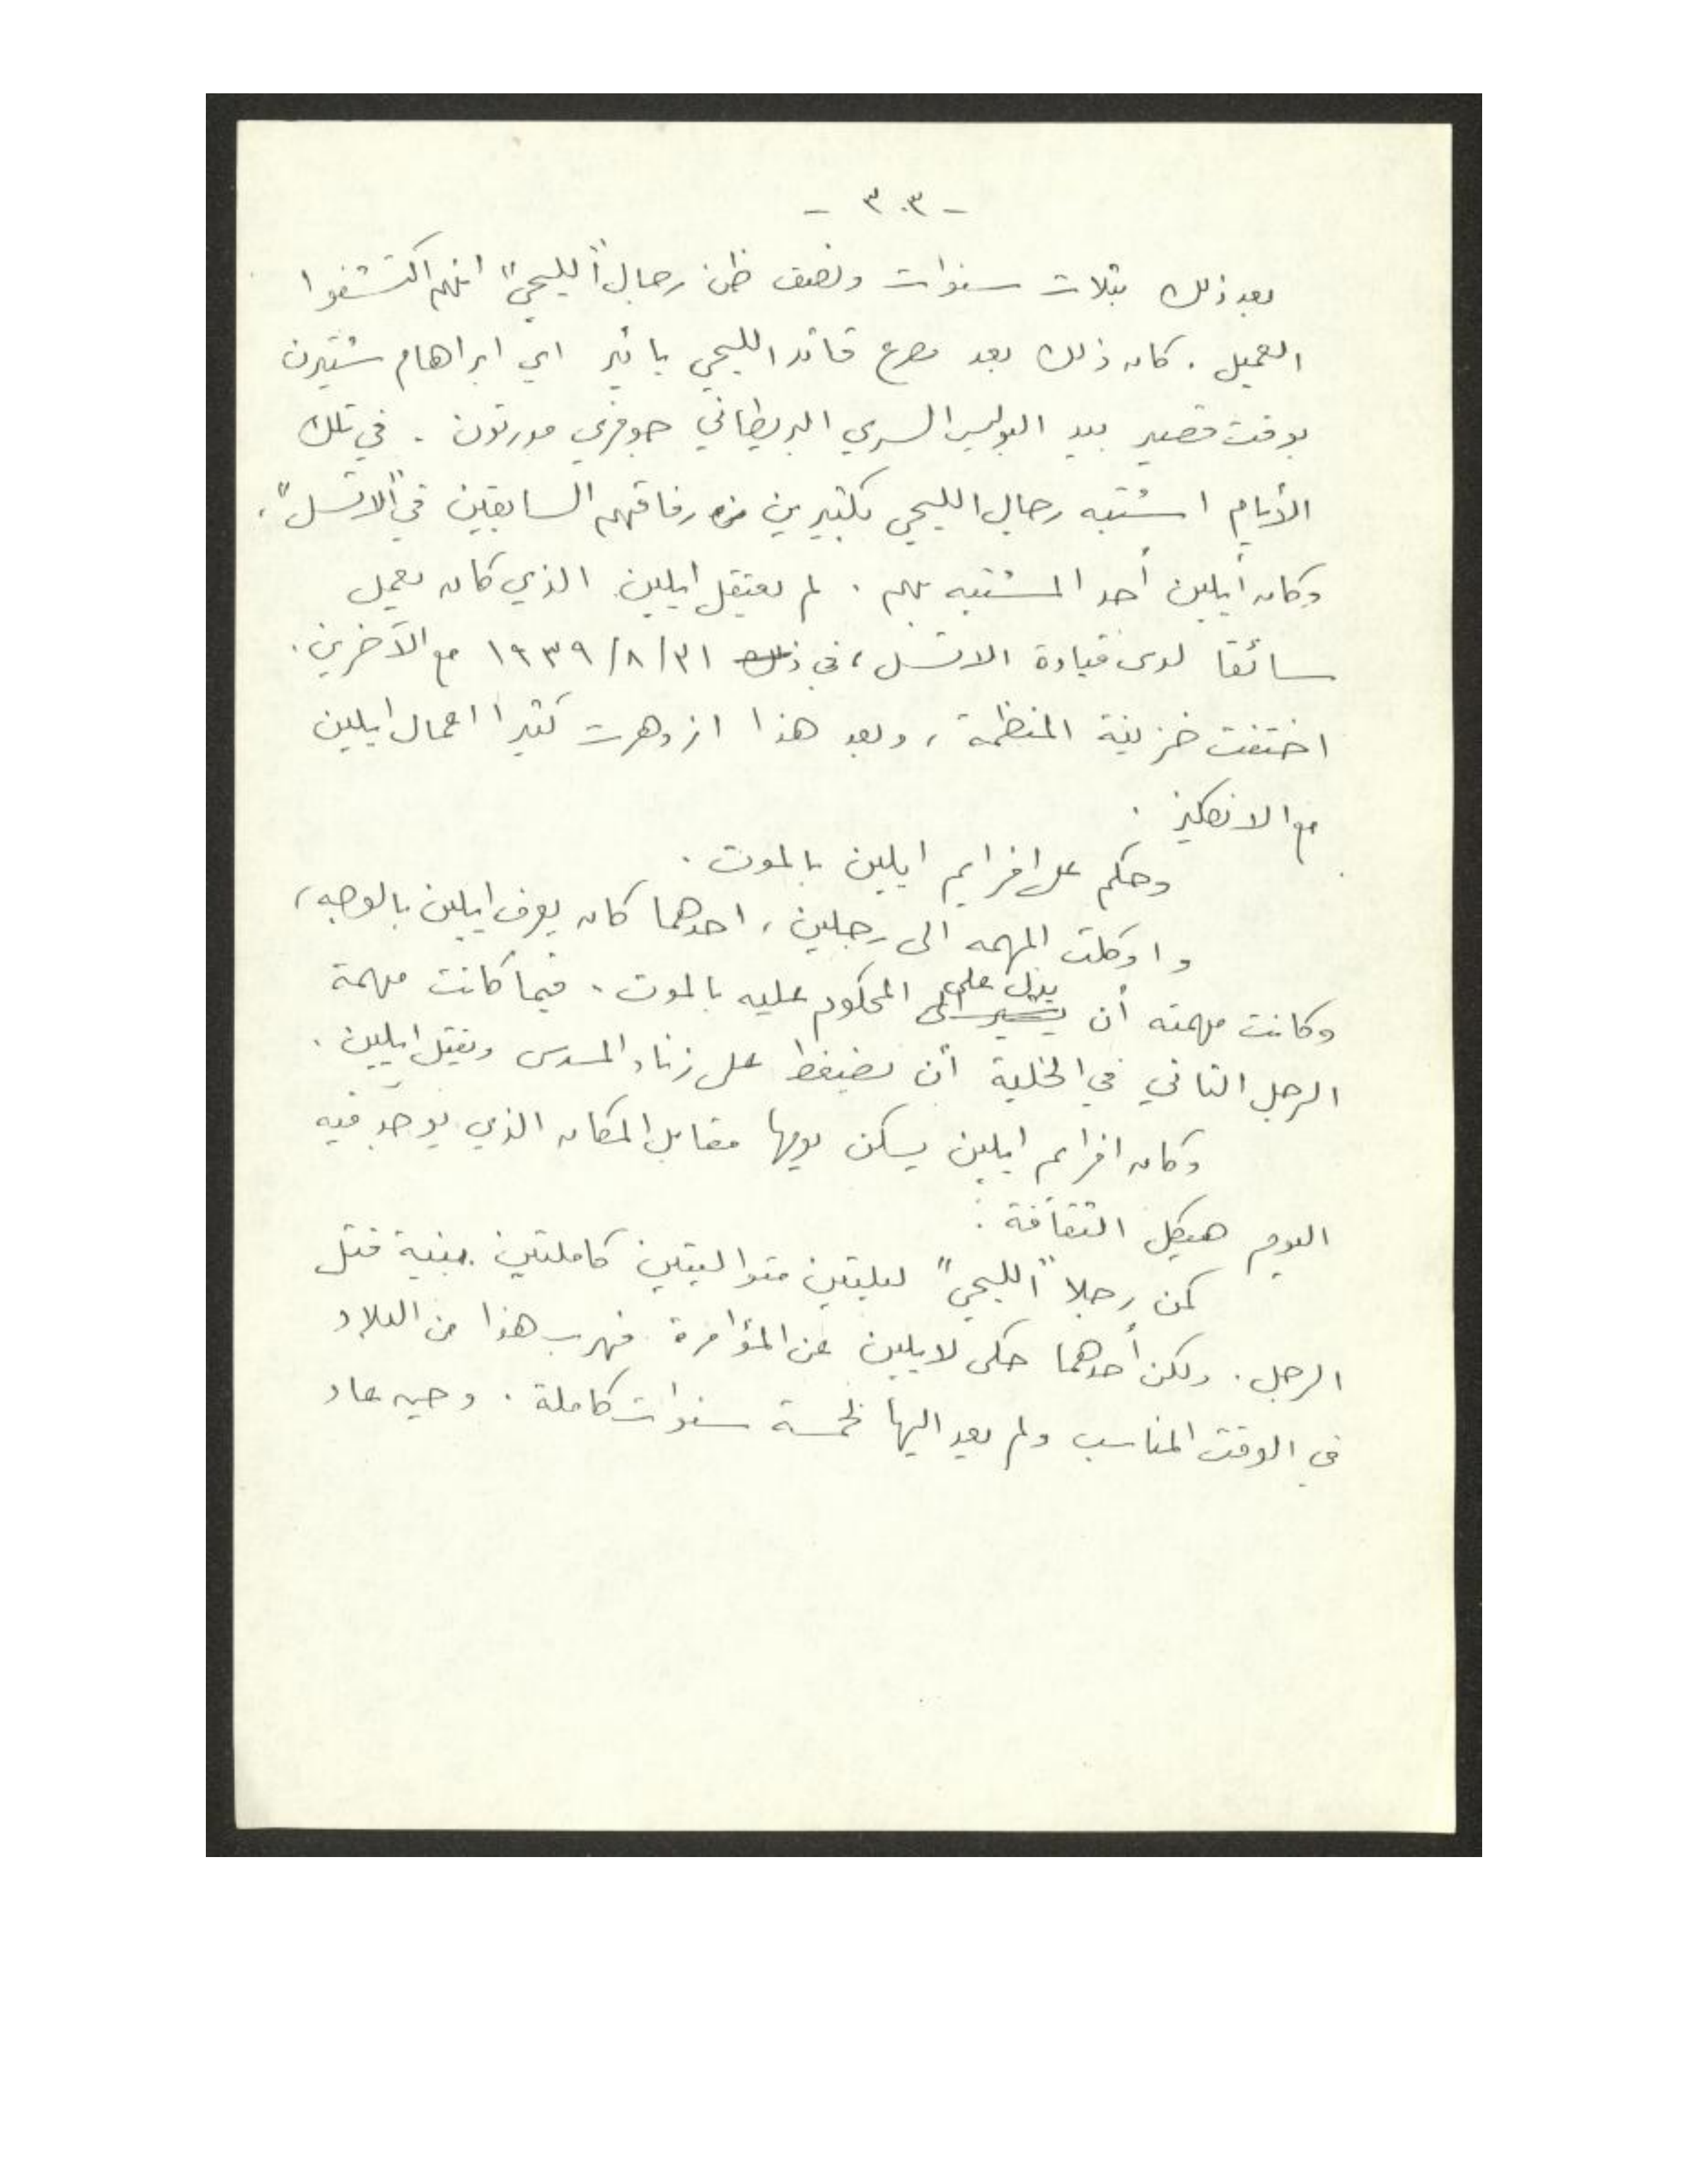 - ٣٠٣ -
بعد ذلك بثلاث سنوات ونصف ظن رجال "الليحي" انهم اكتشفوا
العميل . كان ذلك بعد مصرع قائد الليحي يائير اي ابراهام شتيرن
بوقت قصير بيد البوليس السري البريطاني جوفري مورتون . في تلك
الأيام اشتبه رجال الليحي بكثيرين من رفاقهم السابقين في "الاتسل" .
وكان ايلين أحد المشتبه بهم . لم يعتقل ايلين الذي كان يعمل
سائقا لدى قيادة الاتسل ، في ذلك ٣١/٨/١٩٣٩ مع الآخرين .
اختفت خزينة المنظمة ، وبعد هذا ازدهرت كثيرا اعمال ايلين
مع الانكليز .
وحكم على افرايم ايلين بالموت .
واوكلت المهمه الى رجلين ، احدهما كان يعرف ايلين بالوجه ،
وكانت مهمته أن يدل على المحكوم عليه بالموت . فيما كانت مهمة
الرجل الثاني في الخلية أن يضغط على زناد المسدس ويقتل ايلين .
وكان افرايم ايلين يسكن يومها مقابل المكان الذي يوجد فيه
اليوم هيكل الثقافة .
كمن رجلا "الليحي" لليلتين متواليتين كاملتين بنية قتل
الرجل . ولكن أحدهما حكى لايلين عن المؤامرة فهرب هذا من البلاد
في الوقت المناسب ولم يعد اليها لخمسة سنوات كاملة . وحين عاد